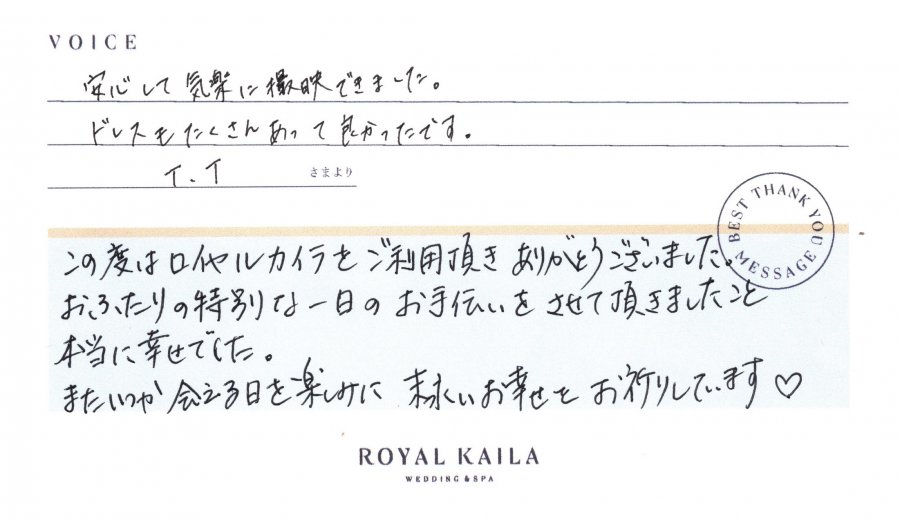 VOICE
安心して気楽に撮映できました。
ドレスもたくさんあって良かったです。
T.T さまより
BEST THANK YOU MESSAGE
この度はロイヤルカイラをご利用頂きありがとうございました。
おふたりの特別な一日のお手伝いをさせて頂きましたこと
本当に幸せでした。
またいつか会える日を楽しみに 末永いお幸せを お祈りしています♡
ROYAL KAILA
WEDDING & SPA